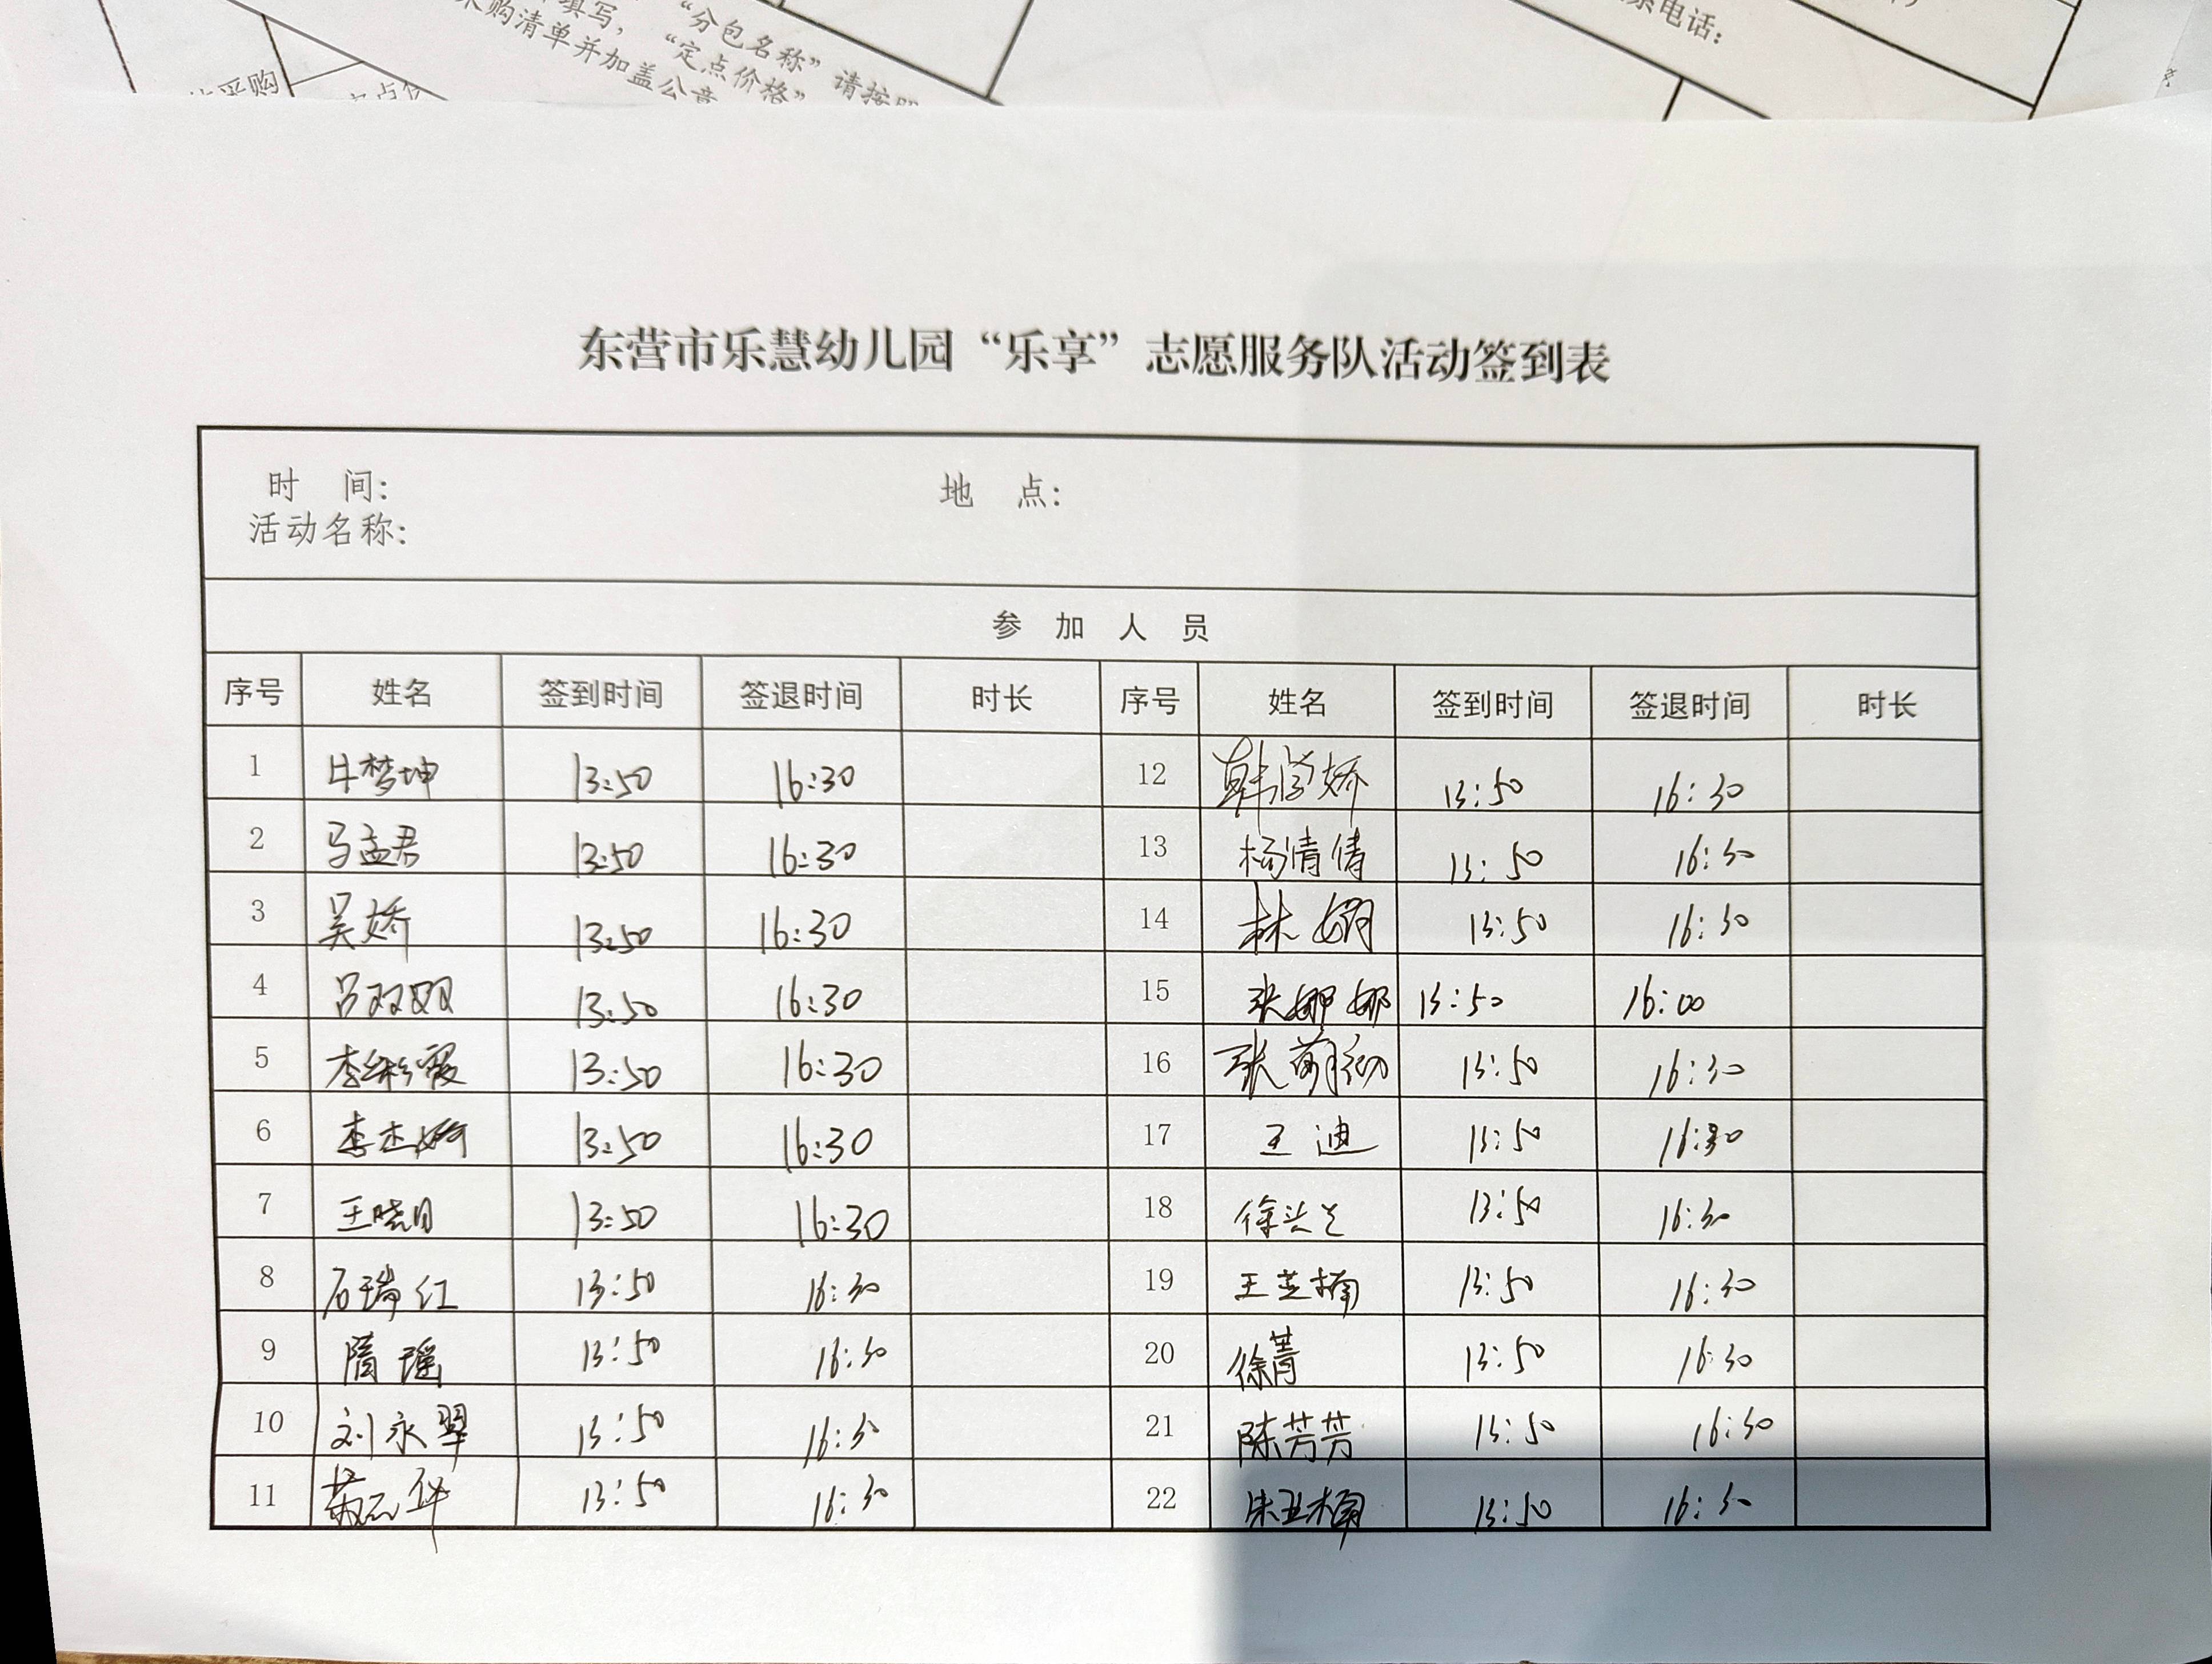 填写，“分包名称”请按照
采购清单并加盖公章
“定点价格”
采购
系电话：
东营市乐慧幼儿园“乐享”志愿服务队活动签到表
时 间： 地 点：
活动名称：
参 加 人 员
序号 姓名 签到时间 签退时间 时长 序号 姓名 签到时间 签退时间 时长
1 牛梦坤 13:50 16:30 12 韩学娇 13:50 16:30
2 马孟君 13:50 16:30 13 杨倩倩 13:50 16:30
3 吴娇 13:50 16:30 14 林娟 13:50 16:30
4 吕双双 13:50 16:30 15 张娜娜 13:50 16:00
5 李彩霞 13:50 16:30 16 张 13:50 16:30
6 李杰 13:50 16:30 17 王迪 13:50 16:30
7 王晓 13:50 16:30 18 徐兰兰 13:50 16:30
8 石瑞红 13:50 16:30 19 王芝楠 13:50 16:30
9 隋瑶 13:50 16:30 20 徐菁 13:50 16:30
10 刘永翠 13:50 16:30 21 陈芳芳 13:50 16:30
11 华 13:50 16:30 22 朱亚楠 13:50 16:30